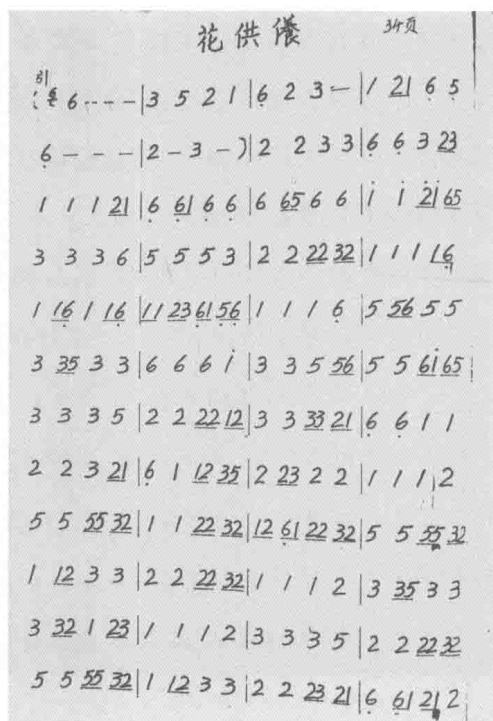 花供养 34页
引
(6 6 - - - | 3 5 2 1 | 6̣ 2 3 - | 1 21 6̣ 5̣
6̣ - - - | 2 - 3 - ) | 2 2 3 3 | 6̣ 6̣ 3 23
1 1 1 21 | 6̣ 6̣1 6̣ 6̣ | 6 65 6 6 | 1̇ 1̇ 2̇1̇ 65
3 3 3 6 | 5 5 5 3 | 2 2 22 32 | 1 1 1 16̣
1 16̣ 1 16̣ | 11 23 6̣1 5̣6̣ | 1 1 1 6̣ | 5 56 5 5
3 35 3 3 | 6 6 6 1̇ | 3 3 5 56 | 5 5 61̇ 65 |
3 3 3 5 | 2 2 22 12 | 3 3 33 21 | 6̣ 6̣ 1 1
2 2 3 21 | 6̣ 1 12 35 | 2 23 2 2 | 1 1 1 2
5 5 55 32 | 1 1 22 32 | 12 6̣1 22 32 | 5 5 55 32
1 12 3 3 | 2 2 22 32 | 1 1 1 2 | 3 35 3 3
3 32 1 23 | 1 1 1 2 | 3 3 3 5 | 2 2 22 32
5 5 55 32 | 1 12 3 3 | 2 2 23 21 | 6̣ 6̣1 21 2